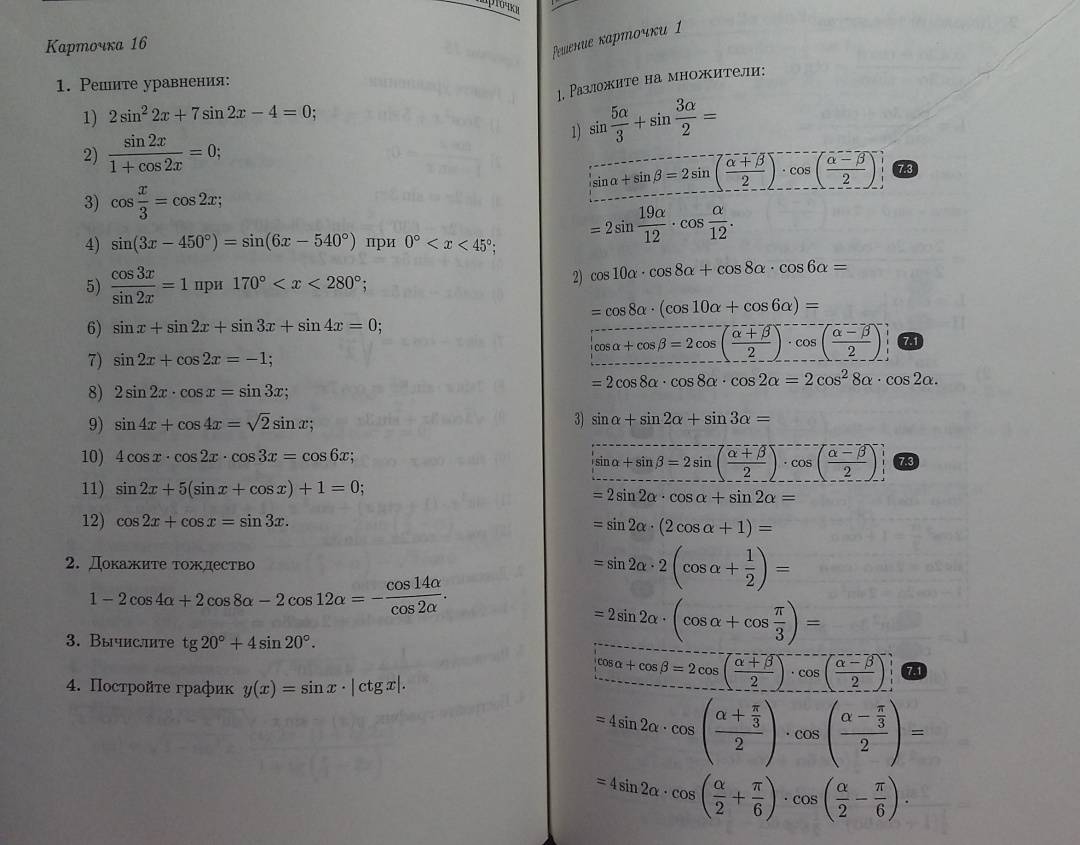 Карточка 16
1. Решите уравнения:
1) 2 sin² 2x + 7 sin 2x − 4 = 0;
2) sin 2x / (1 + cos 2x) = 0;
3) cos x/3 = cos 2x;
4) sin(3x − 450°) = sin(6x − 540°) при 0° < x < 45°;
5) cos 3x / sin 2x = 1 при 170° < x < 280°;
6) sin x + sin 2x + sin 3x + sin 4x = 0;
7) sin 2x + cos 2x = −1;
8) 2 sin 2x · cos x = sin 3x;
9) sin 4x + cos 4x = √2 sin x;
10) 4 cos x · cos 2x · cos 3x = cos 6x;
11) sin 2x + 5(sin x + cos x) + 1 = 0;
12) cos 2x + cos x = sin 3x.
2. Докажите тождество
1 − 2 cos 4α + 2 cos 8α − 2 cos 12α = − cos 14α / cos 2α.
3. Вычислите tg 20° + 4 sin 20°.
4. Постройте график y(x) = sin x · | ctg x|.
Решение карточки 1
1. Разложите на множители:
1) sin 5α/3 + sin 3α/2 =
sin α + sin β = 2 sin ((α + β)/2) · cos ((α − β)/2) 7.3
= 2 sin 19α/12 · cos α/12.
2) cos 10α · cos 8α + cos 8α · cos 6α =
= cos 8α · (cos 10α + cos 6α) =
cos α + cos β = 2 cos ((α + β)/2) · cos ((α − β)/2) 7.1
= 2 cos 8α · cos 8α · cos 2α = 2 cos² 8α · cos 2α.
3) sin α + sin 2α + sin 3α =
sin α + sin β = 2 sin ((α + β)/2) · cos ((α − β)/2) 7.3
= 2 sin 2α · cos α + sin 2α =
= sin 2α · (2 cos α + 1) =
= sin 2α · 2 (cos α + 1/2) =
= 2 sin 2α · (cos α + cos π/3) =
cos α + cos β = 2 cos ((α + β)/2) · cos ((α − β)/2) 7.1
= 4 sin 2α · cos ((α + π/3)/2) · cos ((α − π/3)/2) =
= 4 sin 2α · cos (α/2 + π/6) · cos (α/2 − π/6).